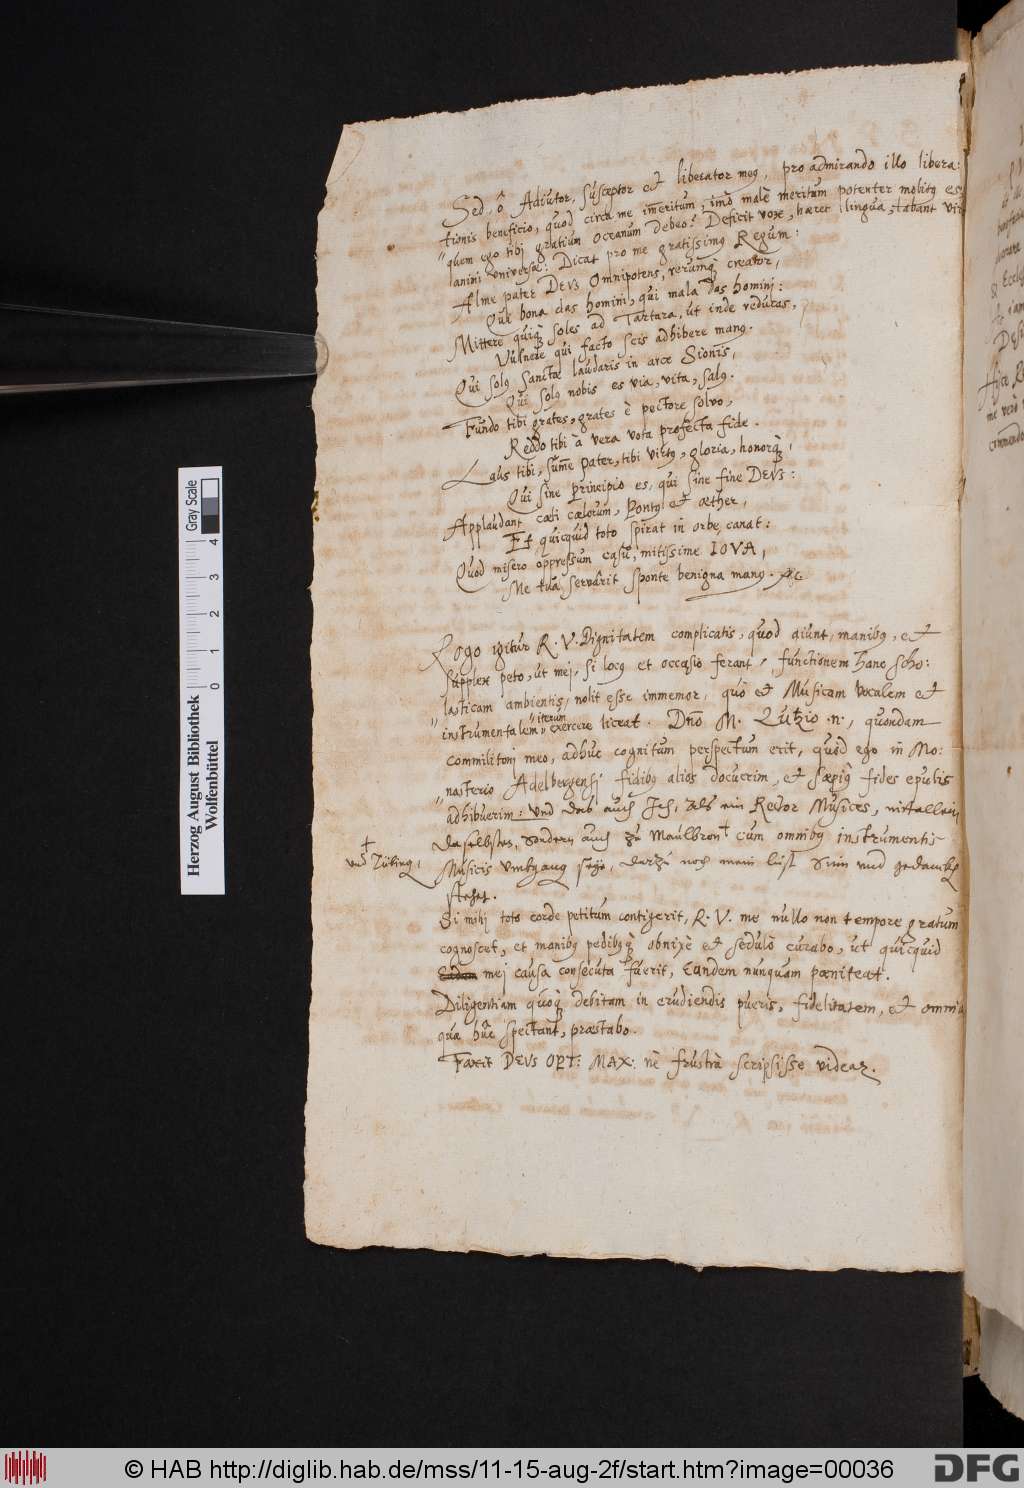 Sed, ô Adiutor, susceptor et liberator meꝰ, pro admirando illo libera:
tionis beneficio, quod circa me im̄eritum, imò malè meritum potenter molitꝰ es,
quem ego tibj gratium Oceanum debeo? Deficit vox, hæret lingua, labant
universæ: Dicat pro me gratissimꝰ Regum:
Alme pater DEVS Omnipotens, rerumq́ꝫ creator,
Qui bona das homini, qui mala das hominj:
Mittere quiq́ꝫ soles ad Tartara, ut inde reducas,
Vulnere qui facto scis adhibere manꝰ.
Qui solꝰ sanctæ laudaris in arce Sionis,
Qui solꝰ nobis es via, vita, salꝰ.
Fundo tibi grates, grates è pectore solvo,
Reddo tibi à vera vota profecta fide.
Laus tibi, sum̄e pater, tibi virtꝰ, gloria, honorq́ꝫ,
Qui sine principio es, qui sine fine DEVS:
Applaudant cœti cælorum, Pontꝰ et æther,
Et quicquid toto spirat in orbe, canat:
Quod misero oppressum casu, mitissime IOVA,
Me tua servârit sponte benigna manꝰ. &c
Rogo igitur R. V. Dignitatem complicatis, quod aiunt, manibꝰ, et
supplex peto, ut mej, si locꝰ et occasio ferant, functionem hanc scho:
lasticam ambientis, nolit esse immemor, quò et Musicam vocalem et
iterum
instrumentalem exercere liceat. Dn̄o M. Lutzio .n., quondam
commilitonj meo, adhuc cognitum perspectum erit, quòd ego in Mo:
nasterio Adelbergensj fidibꝰ alios docuerim, et sæpiꝰ fides epulis
adhibuerim: Vnd das auch Ich, als ein Rector Musices, nit allein
daselbsten, sondern auch zu Maulbron † cum omnibꝰ instrumentis
†
vnd Tübing,
Musicis vmbgang seye, darzu noch mein lust sinn vnd gedancken
stehet.
Si mihj toto corde petitum contigerit, R. V. me nullo non tempore gratum
cognoscet, et manibꝰ pedibꝰq́ꝫ obnixè et sedulò curabo, ut quicquid
mej causa consecuta fuerit, Eandem nunquam pœniteat.
Diligentiam quoq́ꝫ debitam in erudiendis pueris, fidelitatem, et omnia
quæ huc spectant, præstabo.
Faxit DEVS OPT: MAX: nè frustrà scripsisse videar.
Herzog August Bibliothek
Wolfenbüttel
0 1 2 3 4
Gray Scale
© HAB http://diglib.hab.de/mss/11-15-aug-2f/start.htm?image=00036
DFG